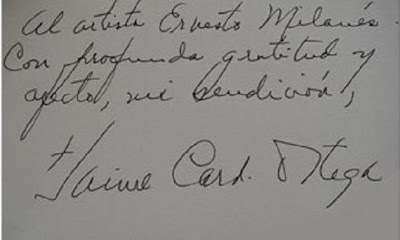 Al artista Ernesto Milanés.
Con profunda gratitud y
afecto, mi bendición,
+Jaime Card. Ortega